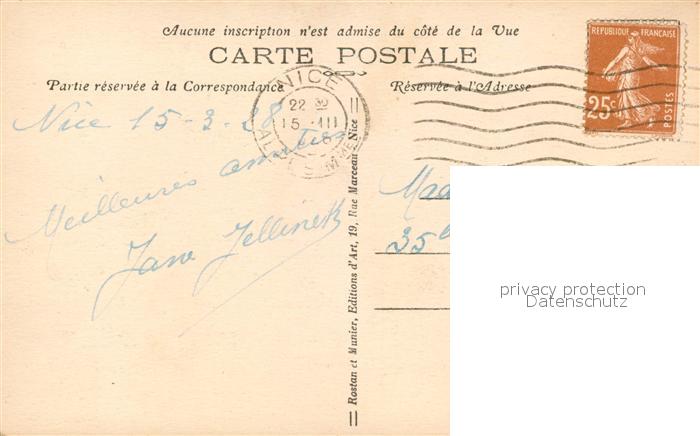 Aucune inscription n'est admise du côté de la Vue
CARTE POSTALE
Partie réservée à la Correspondance
Réservée à l'Adresse
REPUBLIQUE FRANÇAISE
25c
POSTES
NICE
22
15 III
Nice 15-3-28
Meilleures amitiés
Jane Jellinek
35
Rostan et Munier, Editions d'Art, 19, Rue Marceau, Nice
privacy protection
Datenschutz